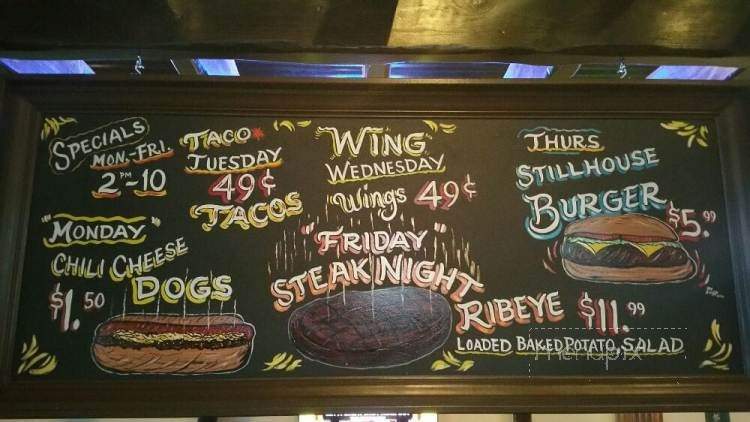 SPECIALS
MON.-FRI.
2PM-10
"MONDAY"
CHILI CHEESE
DOGS
$1.50
TACO
TUESDAY
49¢
TACOS
WING
WEDNESDAY
Wings 49¢
"FRIDAY"
STEAK NIGHT
RIBEYE $11.99
LOADED BAKED POTATO, SALAD
THURS
STILLHOUSE
BURGER
$5.99
menupix